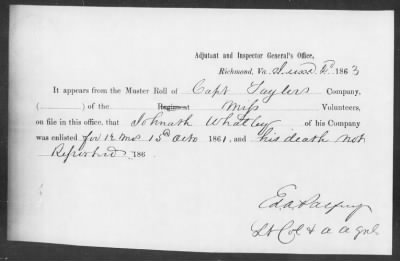 Adjutant and Inspector General's Office,
Richmond, Va. June 2d 1863
It appears from the Muster Roll of Capt Taylers Company,
(..............) of the Regiment Miss Volunteers,
on file in this office, that Johnath Whatley of his Company
was enlisted for 12 mos 15th Octo 1861, and his death not
Reported 186
Lt Col & A A Gnl